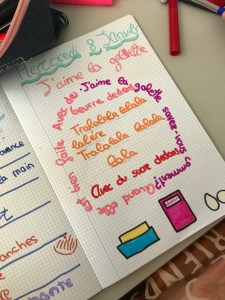 Mercredi 8 Janvier
J'aime la galette
J'aime la galette savez-vous comment ?
Quand elle est bien faite Avec du beurre dedans
Tralalala lalala
lalère
Tralala lalala
lala
Avec du sucre dedans
la main
anches